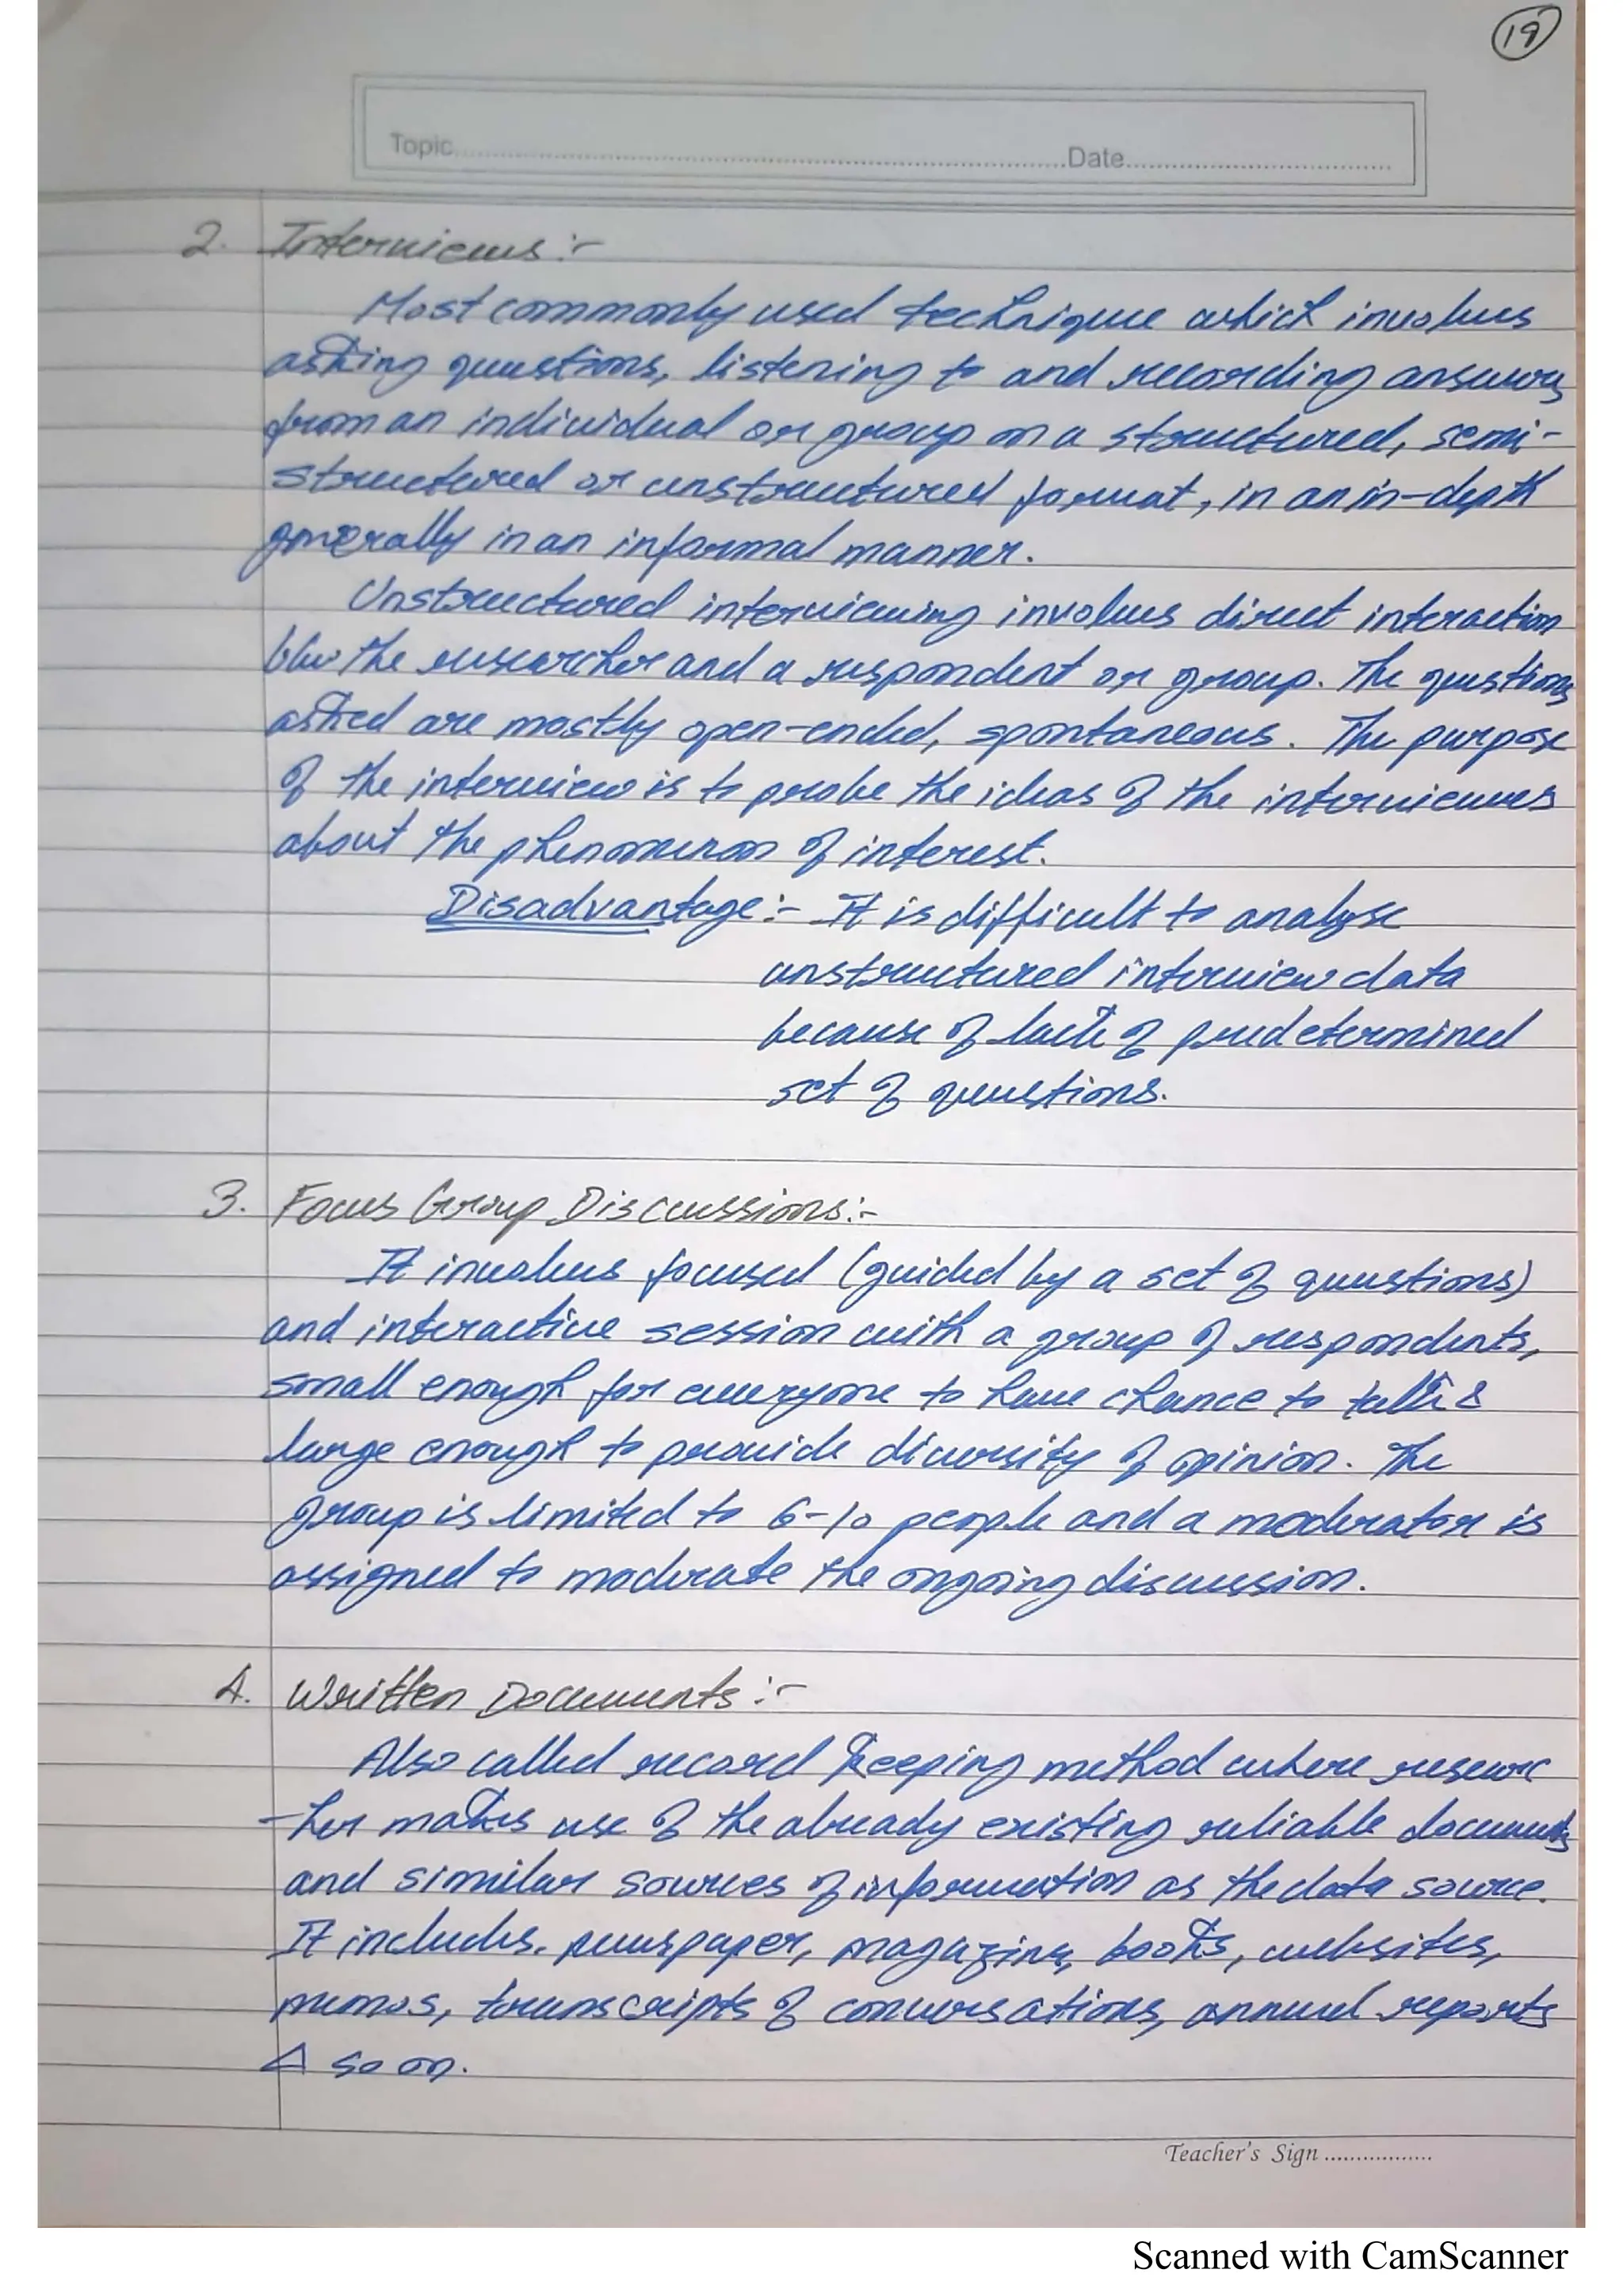 19
Topic..........Date..........
2. Interviews:-
Most commonly used technique which involves
asking questions, listening to and recording answers
from an individual or group on a structured, semi-
structured or unstructured format, in an in-depth
generally in an informal manner.
Unstructured interviewing involves direct interaction
b/w the researcher and a respondent or group. The questions
asked are mostly open-ended, spontaneous. The purpose
of the interview is to probe the ideas of the interviewees
about the phenomenon of interest.
Disadvantage:- It is difficult to analyse
unstructured interview data
because of lack of predetermined
set of questions.
3. Focus Group Discussions:-
It involves focused (guided by a set of questions)
and interactive session with a group of respondents,
small enough for everyone to have chance to talk &
large enough to provide diversity of opinion. The
group is limited to 6-10 people and a moderator is
assigned to moderate the ongoing discussion.
4. Written Documents:-
Also called record keeping method where researc
-her makes use of the already existing reliable documents
and similar sources of information as the data source.
It includes. newspaper, magazine, books, websites,
memos, transcripts of conversations, annual reports
& so on.
Teacher's Sign ..........
Scanned with CamScanner